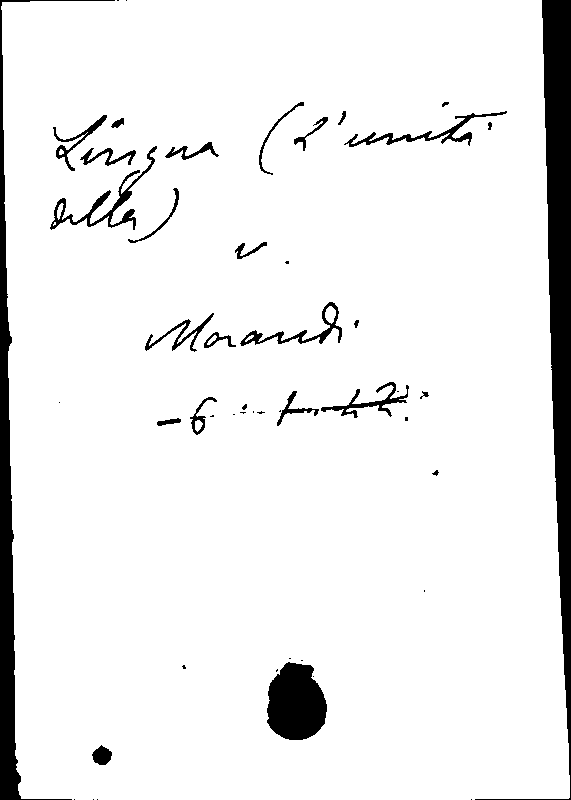 Lingua (L'unità
della)
v.
Morandi